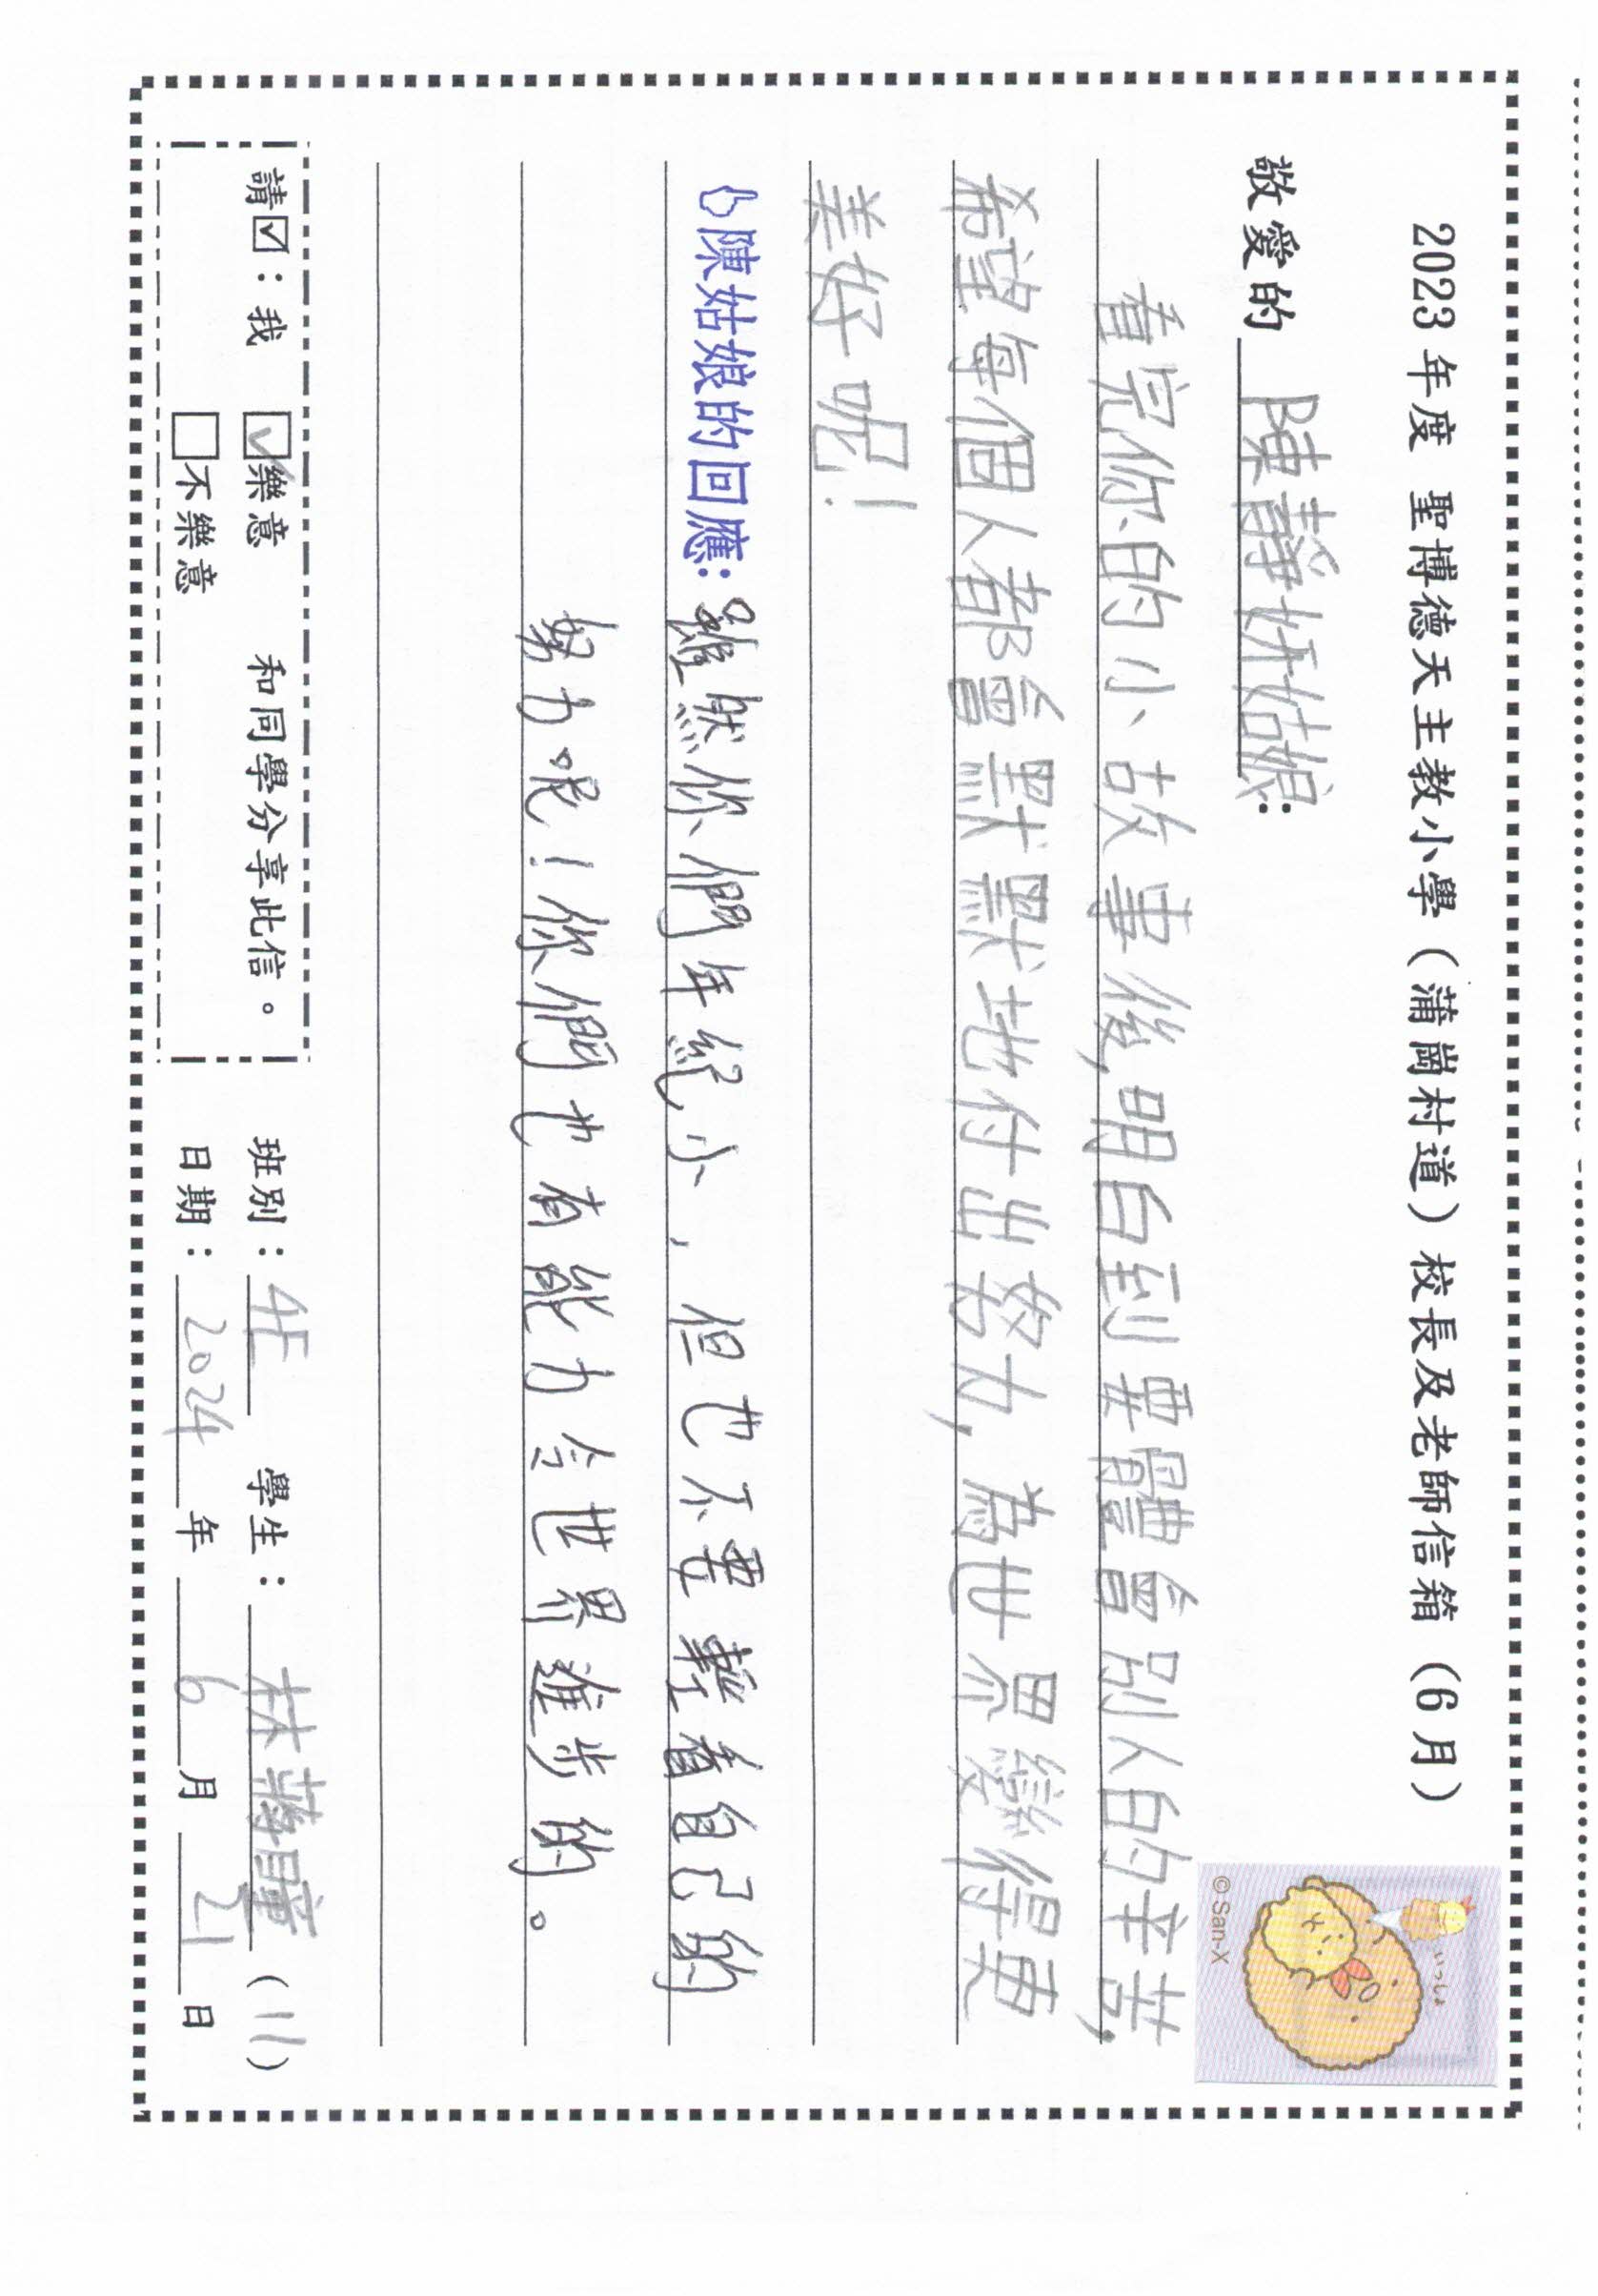 2023 年度 聖博德天主教小學（蒲崗村道）校長及老師信箱（6月）
敬愛的 陳靜妍姑娘：
看完你的小故事後,明白到要體會別人的辛苦,
希望每個人都會默默地付出努力,為世界變得更
美好呢!
陳姑娘的回應：雖然你們年紀小，但也不要輕看自己的
努力呢！你們也有能力令世界進步的。
請☑：我 ☑樂意 和同學分享此信。
☐不樂意
班別：4E 學生：林蕎瞳（11）
日期：2024 年 6 月 21 日
いっしょ
© San-X